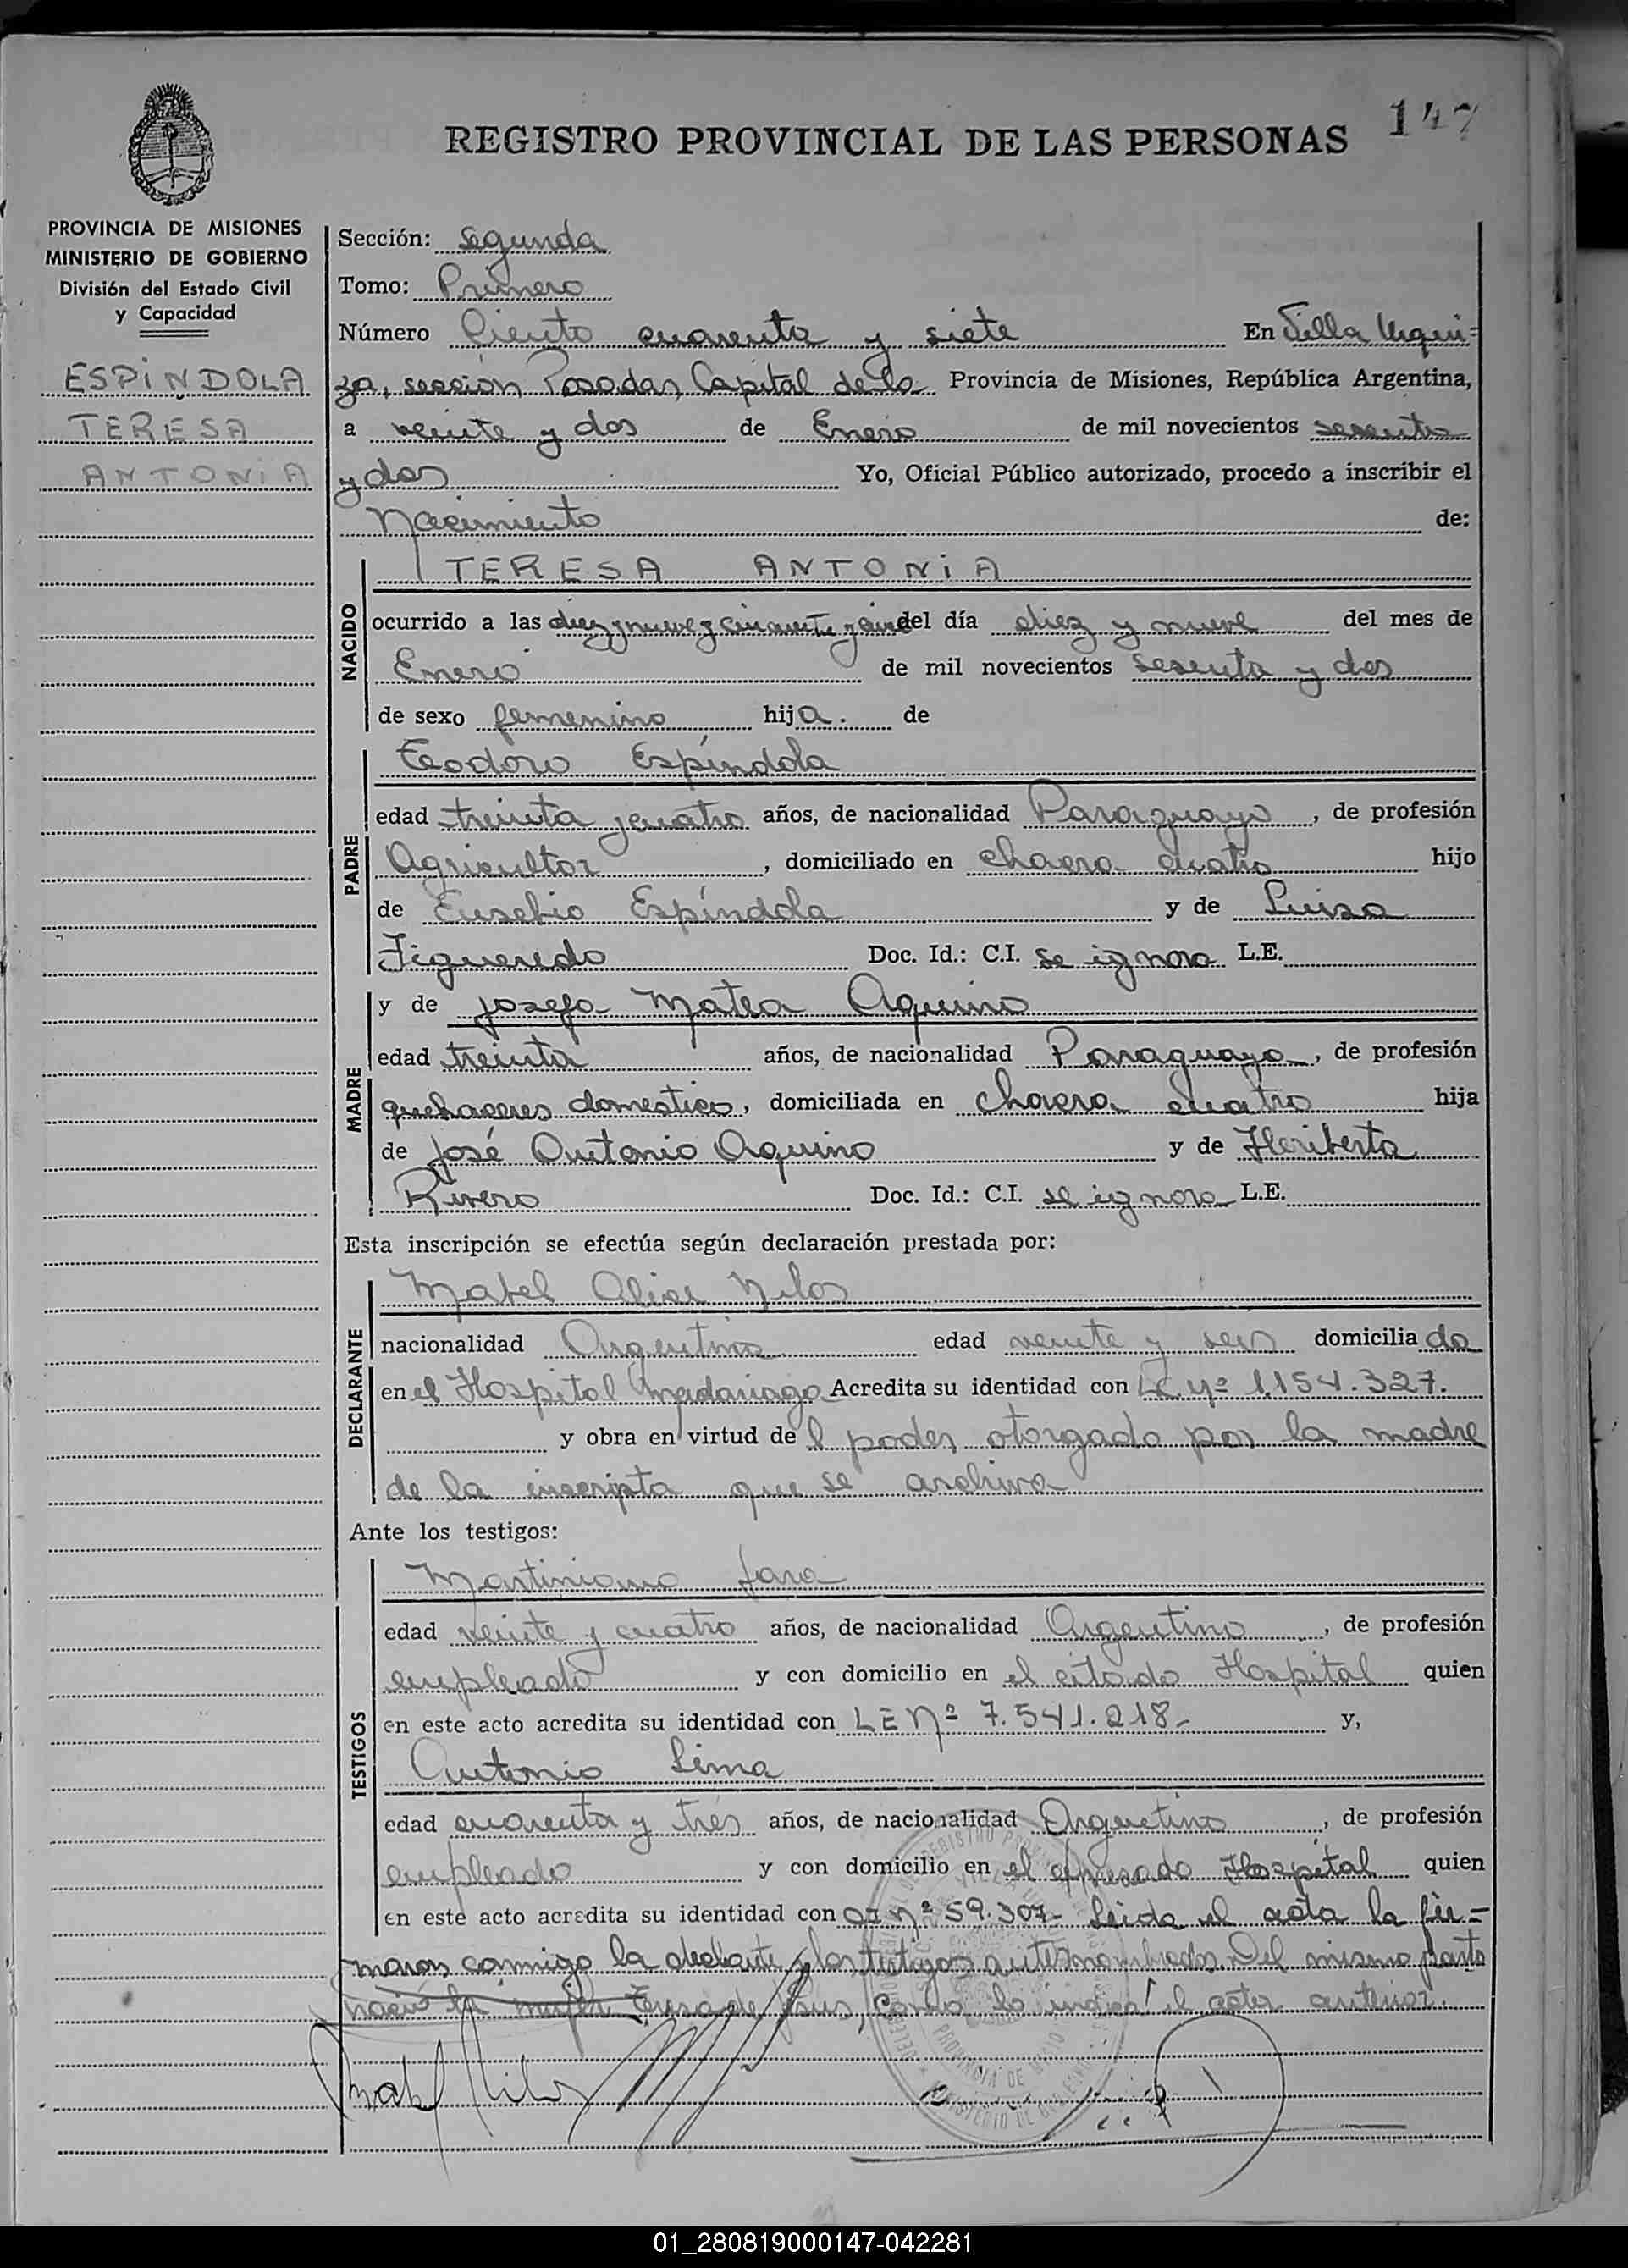 147
REGISTRO PROVINCIAL DE LAS PERSONAS
PROVINCIA DE MISIONES
MINISTERIO DE GOBIERNO
División del Estado Civil
y Capacidad
ESPINDOLA
TERESA
ANTONIA
Sección: Segunda
Tomo: Primero
Número Ciento cuarenta y siete En Villa Urqui-
za, sección Posadas, Capital de la Provincia de Misiones, República Argentina,
a veinte y dos de Enero de mil novecientos sesenta
y dos Yo, Oficial Público autorizado, procedo a inscribir el
Nacimiento de:
NACIDO
TERESA ANTONIA
ocurrido a las diez y nueve y cincuenta y del día diez y nueve del mes de
Enero de mil novecientos sesenta y dos
de sexo femenino hija. de
PADRE
Teodoro Espíndola
edad treinta y cuatro años, de nacionalidad Paraguayo, de profesión
Agricultor, domiciliado en chacra cuatro hijo
de Eusebio Espíndola y de Luisa
Figueredo Doc. Id.: C.I. se ignora L.E.
MADRE
y de Josefa Matea Aquino
edad treinta años, de nacionalidad Paraguaya, de profesión
quehaceres domestico, domiciliada en chacra cuatro hija
de José Antonio Aquino y de Heriberta
Rivero Doc. Id.: C.I. se ignora L.E.
Esta inscripción se efectúa según declaración prestada por:
DECLARANTE
Mabel Alice Milos
nacionalidad Argentina edad veinte y seis domiciliada
en el Hospital Madariaga Acredita su identidad con LC Nº 1.154.327.
y obra en virtud del poder otorgado por la madre
de la inscripta que se archiva
Ante los testigos:
TESTIGOS
Martiniano Jara
edad veinte y cuatro años, de nacionalidad Argentino, de profesión
empleado y con domicilio en el citado Hospital quien
en este acto acredita su identidad con LE Nº 7.541.218- y,
Antonio Lima
edad cuarenta y tres años, de nacionalidad Argentino, de profesión
empleado y con domicilio en el expresado Hospital quien
en este acto acredita su identidad con CI Nº 59.307- Leida el acta la fir-
maron conmigo la y los testigos antesnombrados. Del mismo parto
nació la mujer Teresa de Jesus, como lo indica el acta anterior.
01_280819000147-042281